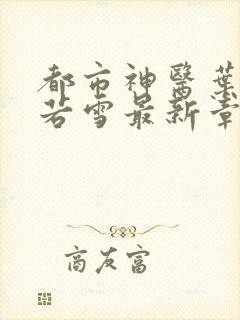 都市神醫葉
若雪最新章
商友富